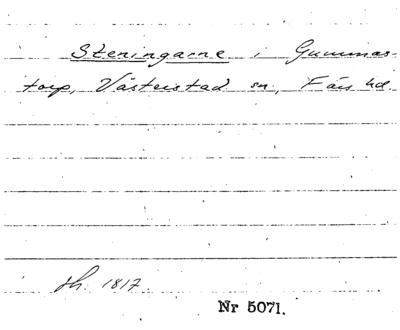 Steningarne i Gummas-
torp, Västerstad sn, Färs hd.
sh. 1817.
Nr 5071.